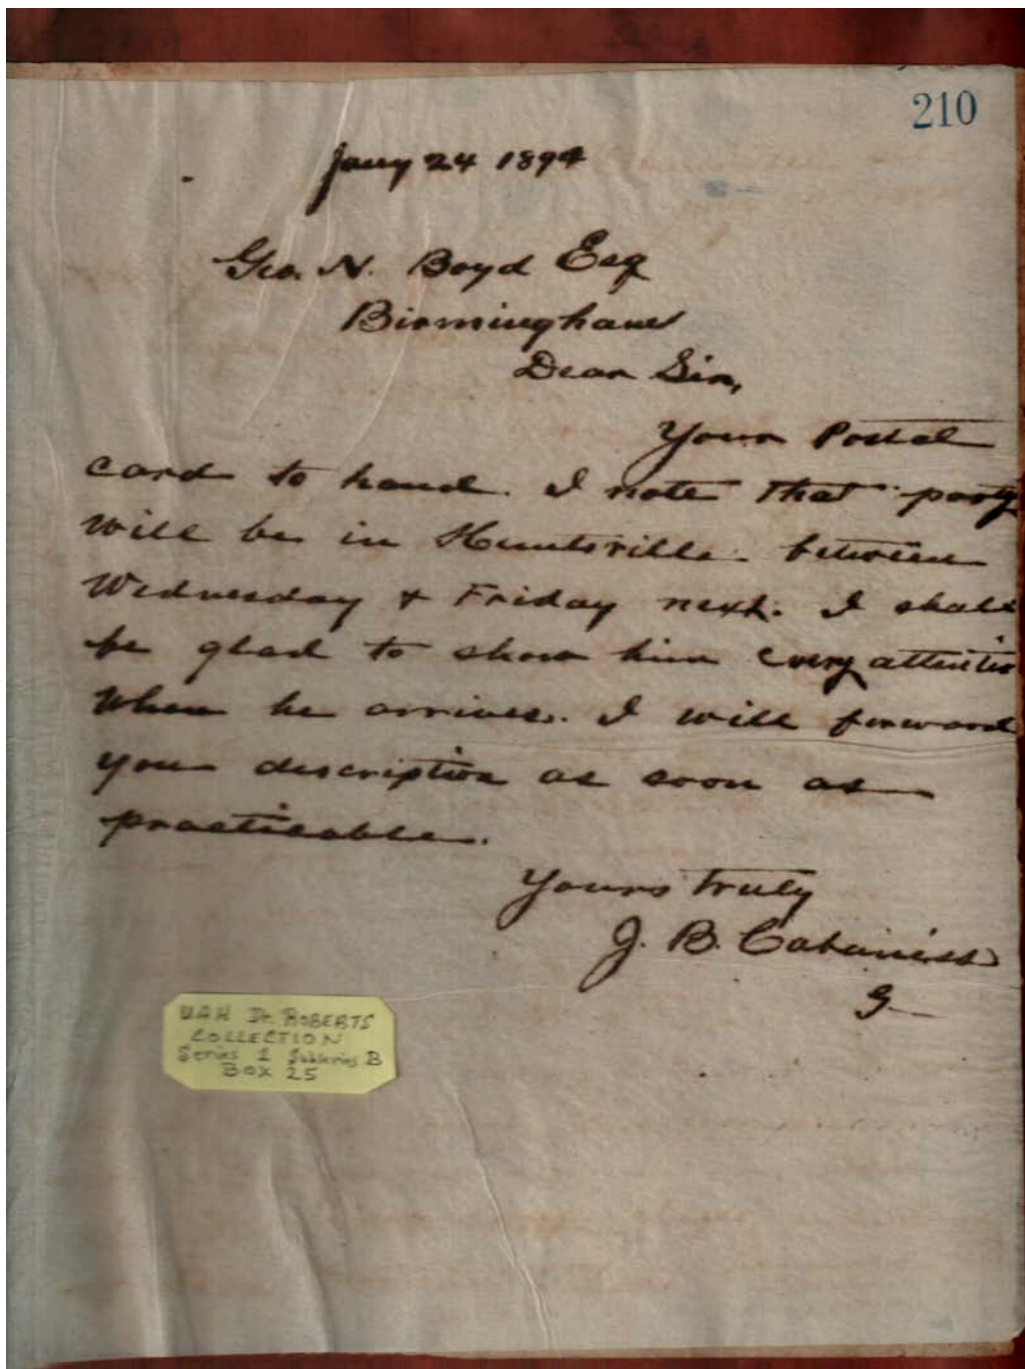 210
Jany 24 1894
Geo. N. Boyd Esq
Birmingham
Dear Sir,
Your Postal
card to hand. I note that party
will be in Huntsville between
Wednesday & Friday next. I shall
be glad to show him every attention
when he arrives. I will forward
you description as soon as
practicable.
Yours truly
J. B. Cabaniss
G
UAH Dr. ROBERTS
COLLECTION
Series 1 Subseries B
BOX 25